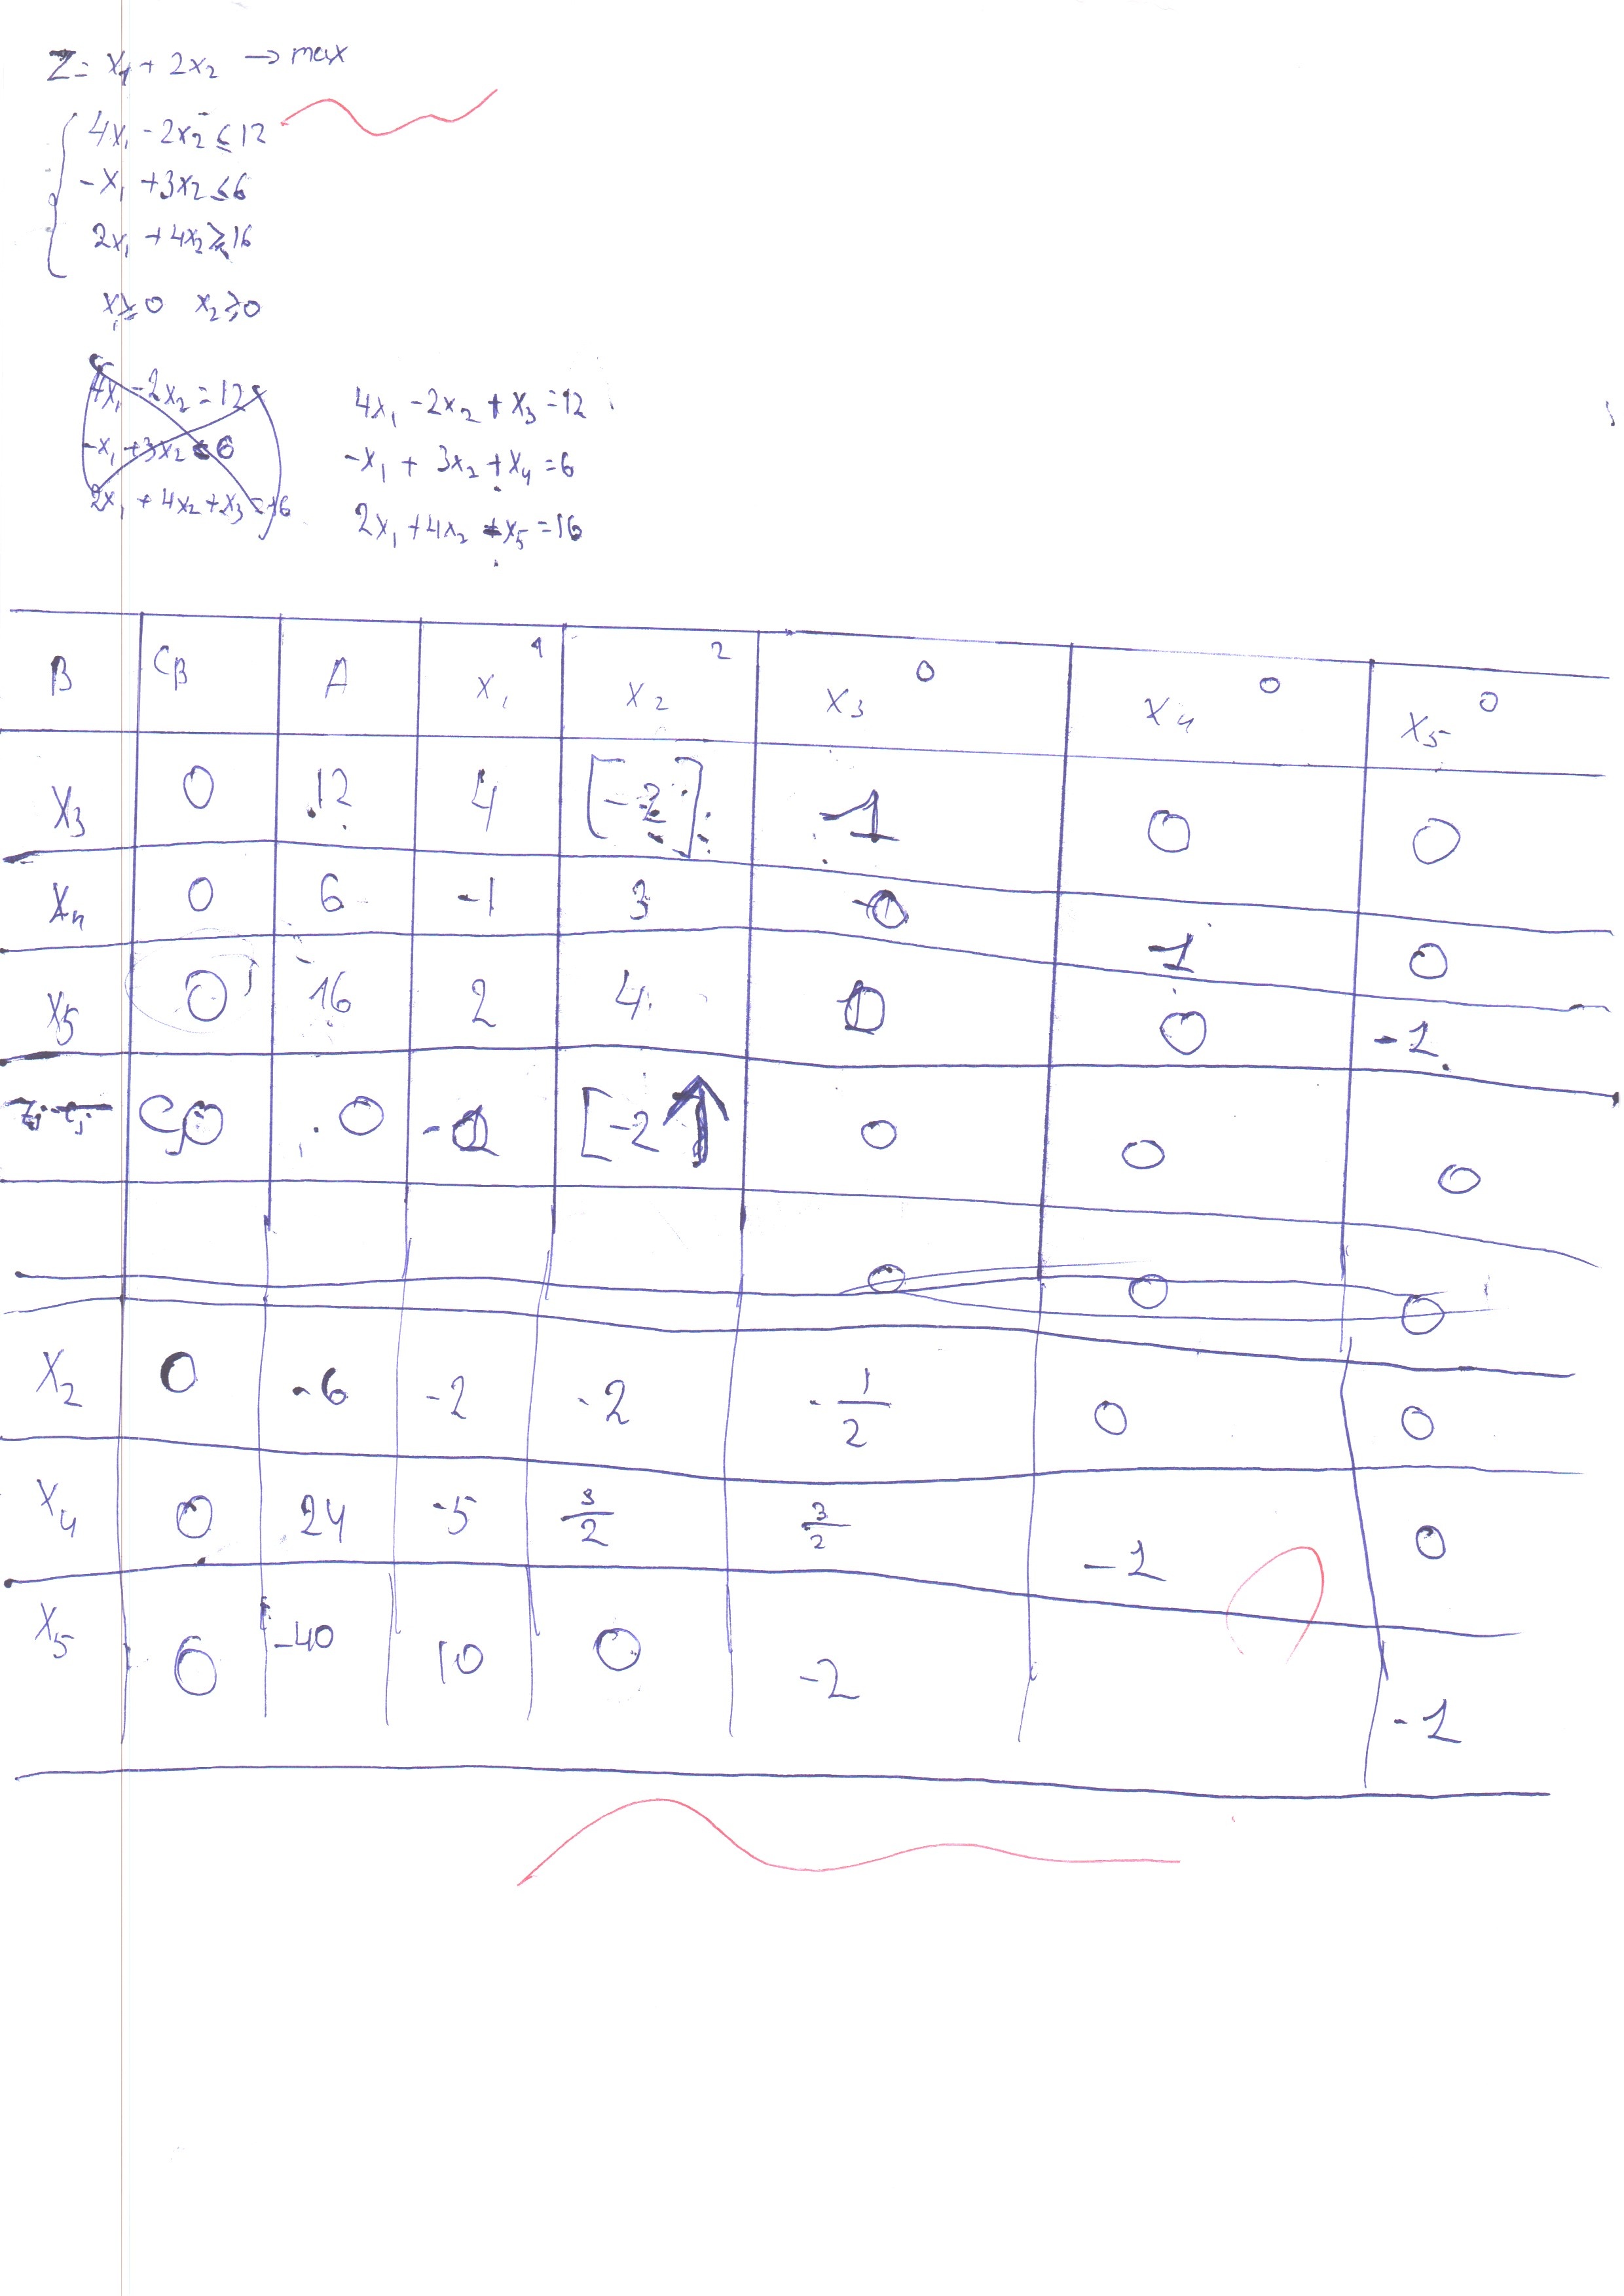 Z = x₁ + 2x₂ → max
4x₁ - 2x₂ ≤ 12
-x₁ + 3x₂ ≤ 6
2x₁ + 4x₂ ≥ 16
x₁ ≥ 0 x₂ ≥ 0
4x₁ - 2x₂ = 12
-x₁ + 3x₂ 6
2x₁ + 4x₂ + x₃ = 16
4x₁ - 2x₂ + x₃ = 12
-x₁ + 3x₂ + x₄ = 6
2x₁ + 4x₂ x₅ = 16
B C_B A x₁ 1 x₂ 2 x₃ 0 x₄ 0 x₅ 0
x₃ 0 12 4 [-2] -1 0 0
x₄ 0 6 -1 3 0 -1 0
x₅ 0 16 2 4 0 0 -1
Zj-Cj 0 0 [-2 ↑ 0 0 0
0 0 0
x₂ 0 -6 -2 -2 -1/2 0 0
x₄ 0 24 -5 3/2 3/2 -1 0
x₅ 0 -40 10 0 -2 -1